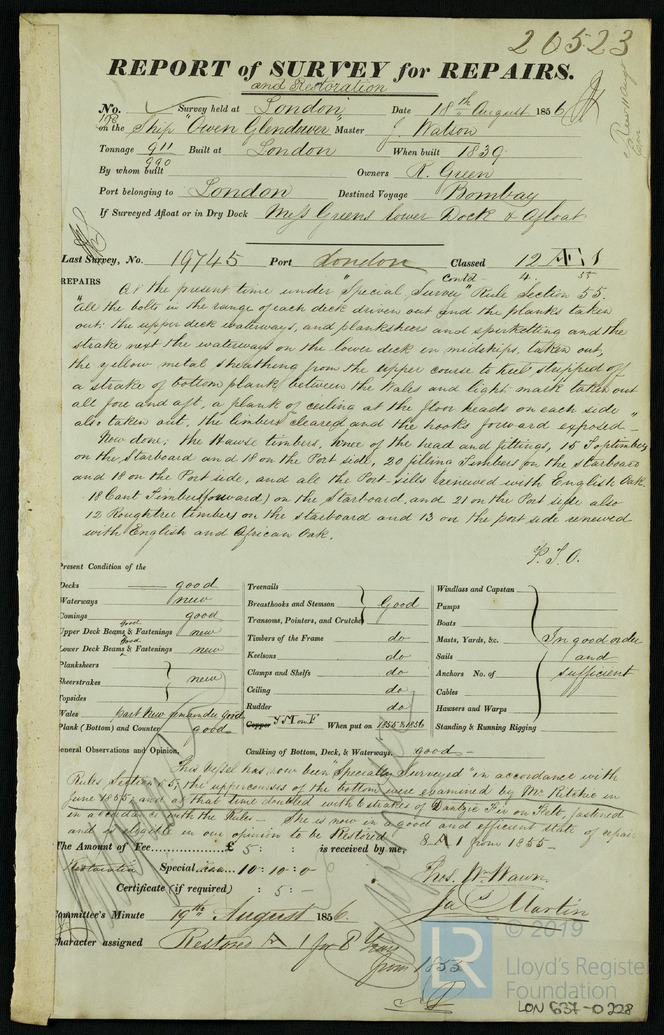 20523
REPORT of SURVEY for REPAIRS.
and Restoration
No. Survey held at London Date 18th August 1856
on the Ship "Owen Glendower" Master J Watson
Tonnage 911 Built at London When built 1839
990
By whom built Owners R. Green
Port belonging to London Destined Voyage Bombay
If Surveyed Afloat or in Dry Dock Messrs Greens lower Dock & afloat
Last Survey, No. 19745 Port London Classed 12 Æ 1
Contd 4. 55
REPAIRS At the present time under "Special Survey" Rule Section 55.
"All the bolts in the range of each deck driven out and the planks taken
out; the upper deck waterways, and planksheers and spirketting and the
strake next the waterways on the lower deck in midships, taken out,
the yellow metal sheathing from the upper course to keel stripped off
a strake of bottom plank between the Wales and light mark taken out
all fore and aft, a plank of ceiling at the floor heads on each side
also taken out, the timbers cleared and the hooks forward exposed"
Now done; the Hawse timbers, knee of the head and fittings, 15 Toptimbers
on the Starboard and 18 on the Port side, 20 filling Timbers on the starboard
and 18 on the Port side, and all the Port-Sills renewed with English Oak
18 Cant Timbers (forward) on the Starboard, and 21 on the Port side also
12 Roughtree timbers on the starboard and 13 on the port side renewed
with English and African Oak.
P.T.O.
Present Condition of the
Decks good
Waterways new
Comings good
Upper Deck Beams good & Fastenings new
Lower Deck Beams good & Fastenings new
Planksheers
Sheerstrakes new
Topsides
Wales part New remainder good
Plank (Bottom) and Counter good
Treenails
Breasthooks and Stemson Good
Transoms, Pointers, and Crutches
Timbers of the Frame do
Keelsons do
Clamps and Shelfs do
Ceiling do
Rudder do
Copper YM on F When put on 1855 & 1856
Windlass and Capstan
Pumps
Boats
Masts, Yards, &c. In good order
Sails and
Anchors No. of sufficient
Cables
Hawsers and Warps
Standing & Running Rigging
General Observations and Opinion, Caulking of Bottom, Deck, & Waterways. good
This vessel has now been "Specially Surveyed" in accordance with
Rules Section 55, the uppercourses of the bottom were examined by Mr Ritchie in
June 1855, and at that time doubled with 6 strakes of Dantzic Fir on Felt, fastened
in accordance with the Rules - She is now in a good and efficient state of repair
and is eligible in our opinion to be Restored 8 A 1 from 1855
The Amount of Fee £ 5 : : is received by me,
Restoration Special 10 : 10 : 0
Certificate (if required) : 5 : -
Thos. Wm Wawn.
Jas Martin
Committee's Minute 19th August 1856.
Character assigned Restored A 1 for 8 Years
from 1855
LR
© 2019
Lloyd's Register
Foundation
LON 637-0228